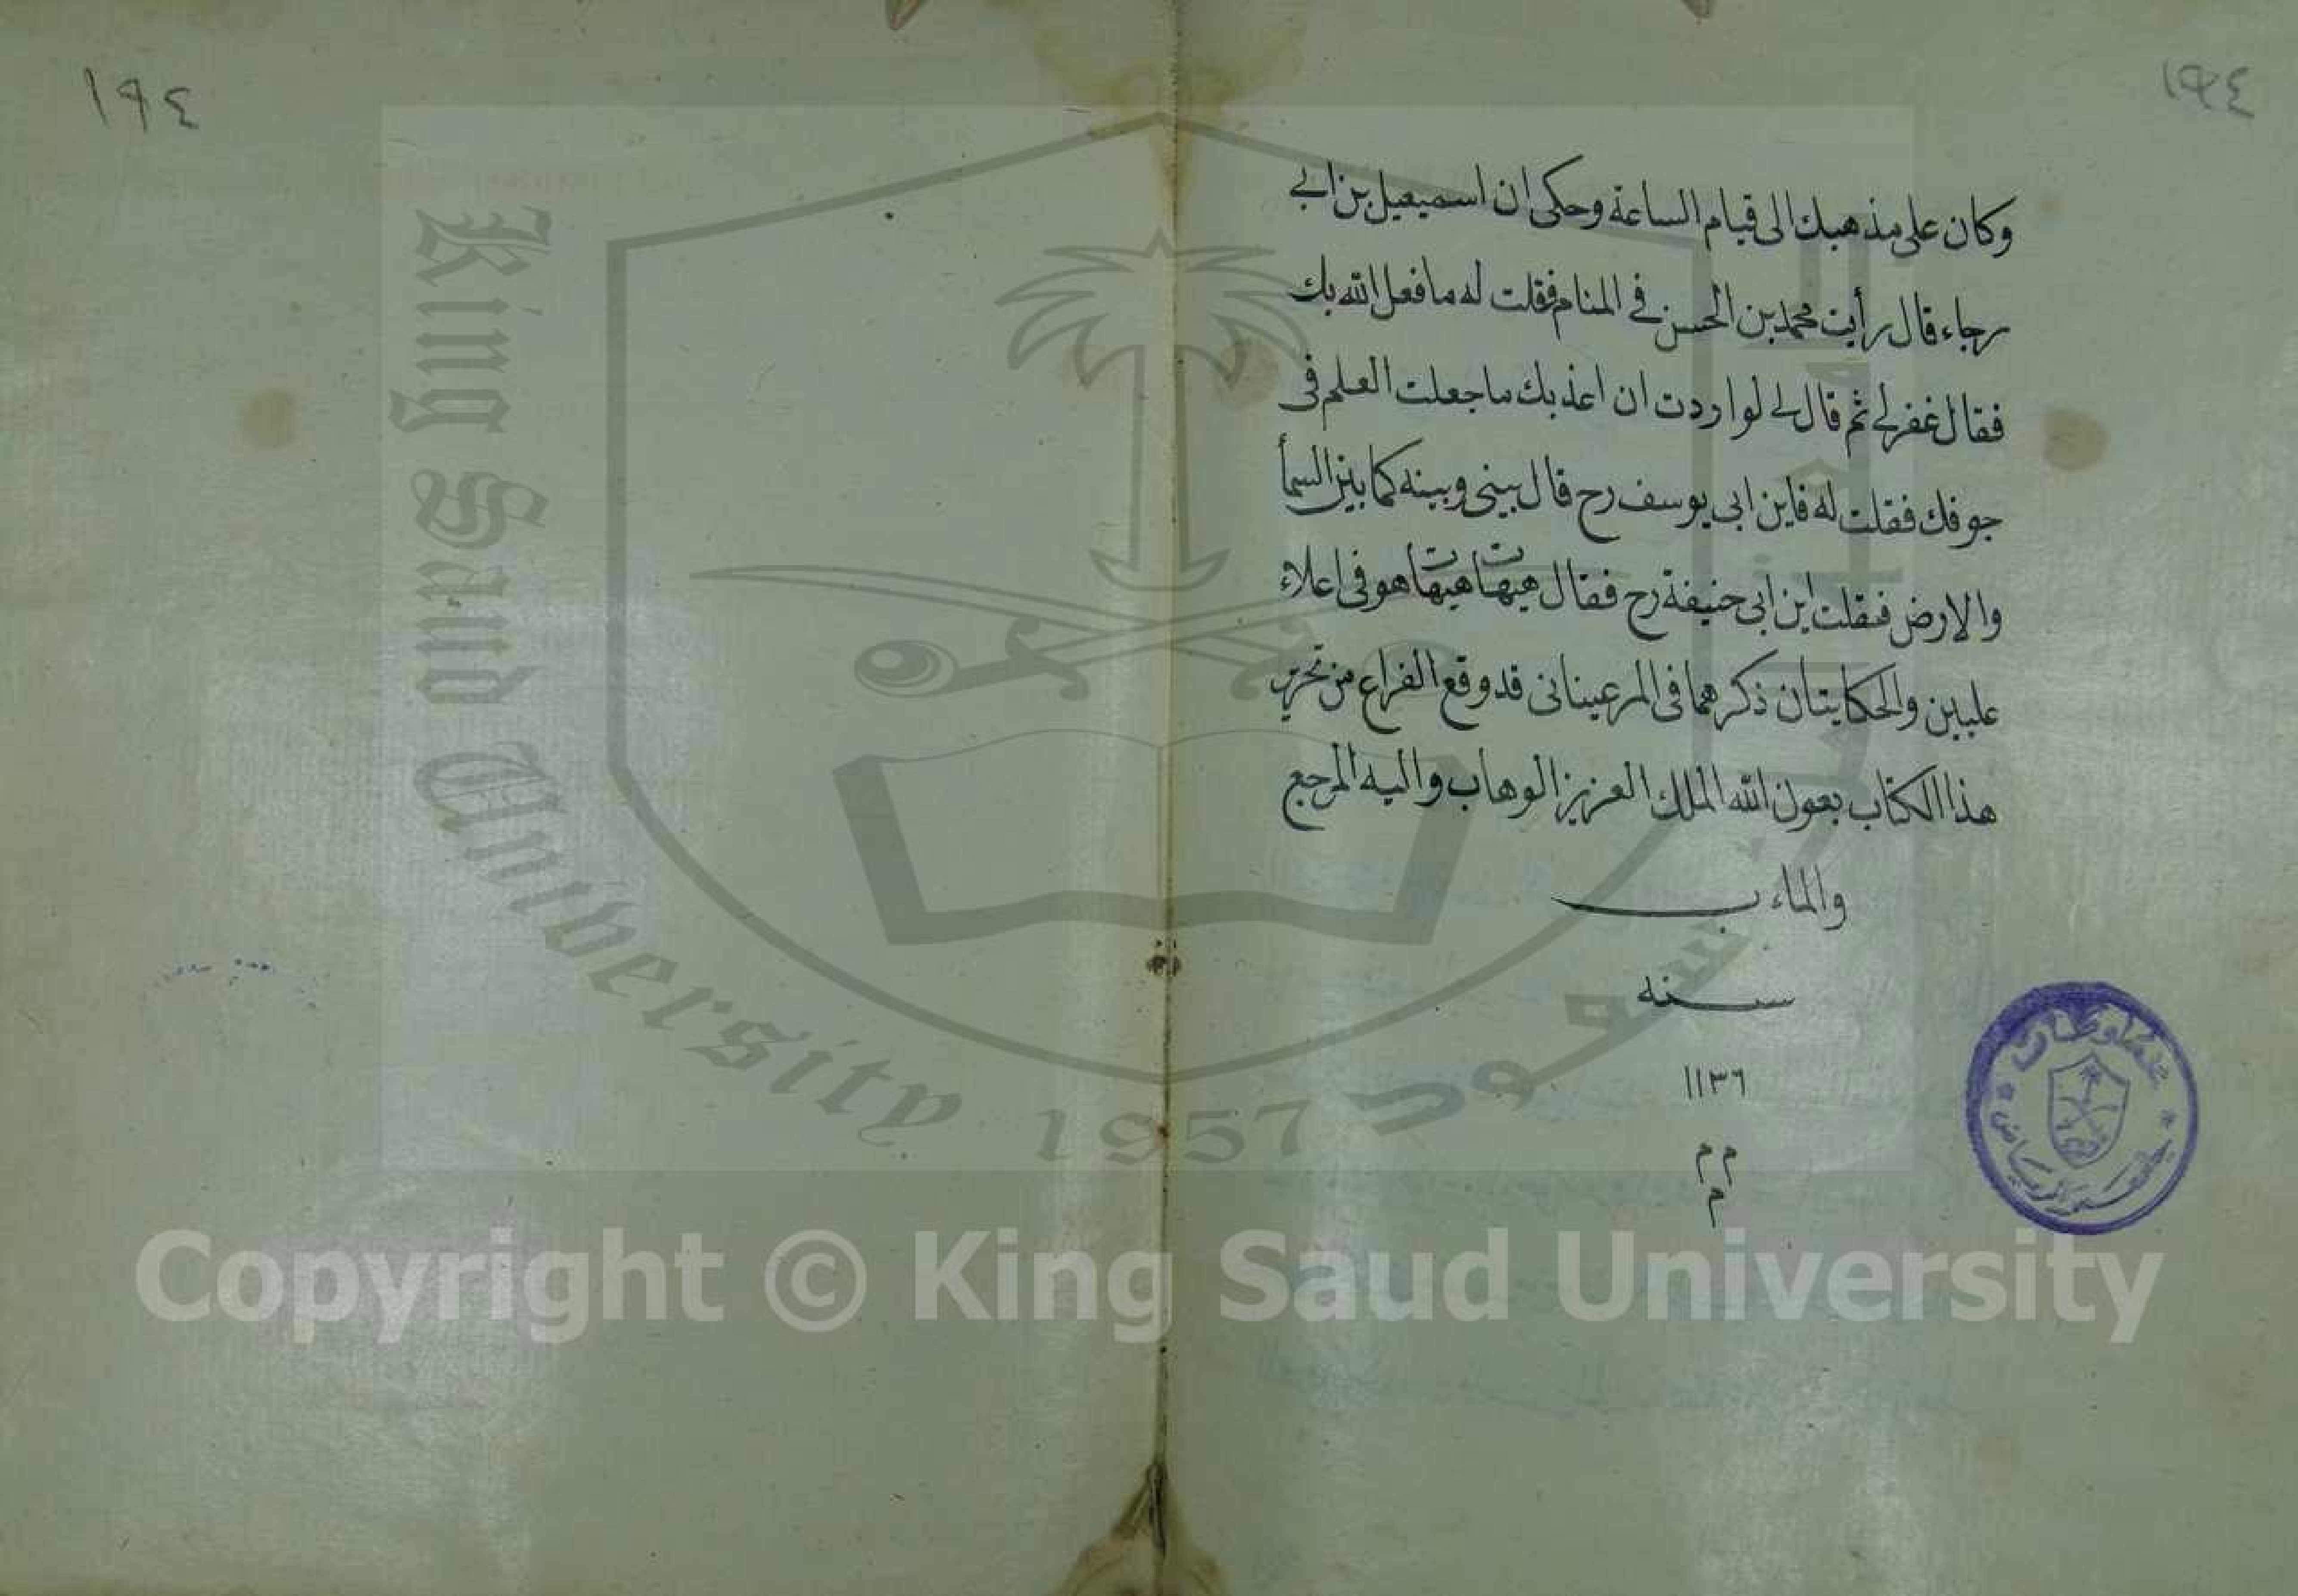 ١٩٤
وكان على مذهبك الى قيام الساعة وحكى ان اسمعيل بن ابي
رجاء قال رأيت محمد بن الحسن في المنام فقلت له ما فعل الله بك
فقال غفر لي ثم قال لي لو اردت ان اعذبك ما جعلت العلم في
جوفك فقلت له فاين ابى يوسف رح قال بينى وبينه كما بين السمأ
والارض فقلت اين ابى حنيفة رح فقال هيهات هيهات هو فى اعلاء
عليين والحكايتان ذكرهما فى المرعينانى قد وقع الفراع من تحرير
هذا الكتاب بعون الله الملك العزيز الوهاب واليه المرجع
والماءب
سنه
١١٣٦
م م
م
١٩٤
King Saud University
1957
Copyright © King Saud University